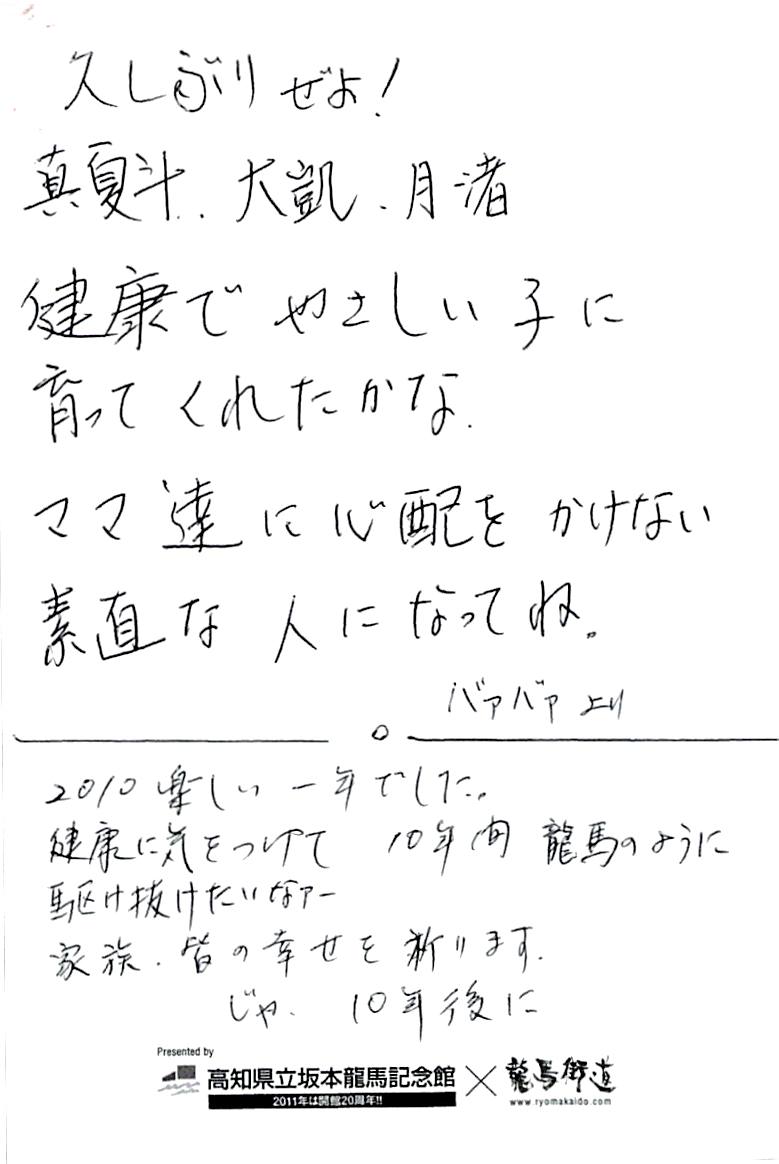 久しぶりぜよ!
真夏斗、大凱、月渚
健康でやさしい子に
育ってくれたかな.
ママ達に心配をかけない
素直な人になってね。
バァバァより
2010楽しい一年でした。
健康に気をつけて 10年間 龍馬のように
駆け抜けたいなァー
家族、皆の幸せを祈ります.
じゃ、10年後に
Presented by
高知県立坂本龍馬記念館×龍馬街道
2011年は開館20周年!!
www.ryomakaido.com